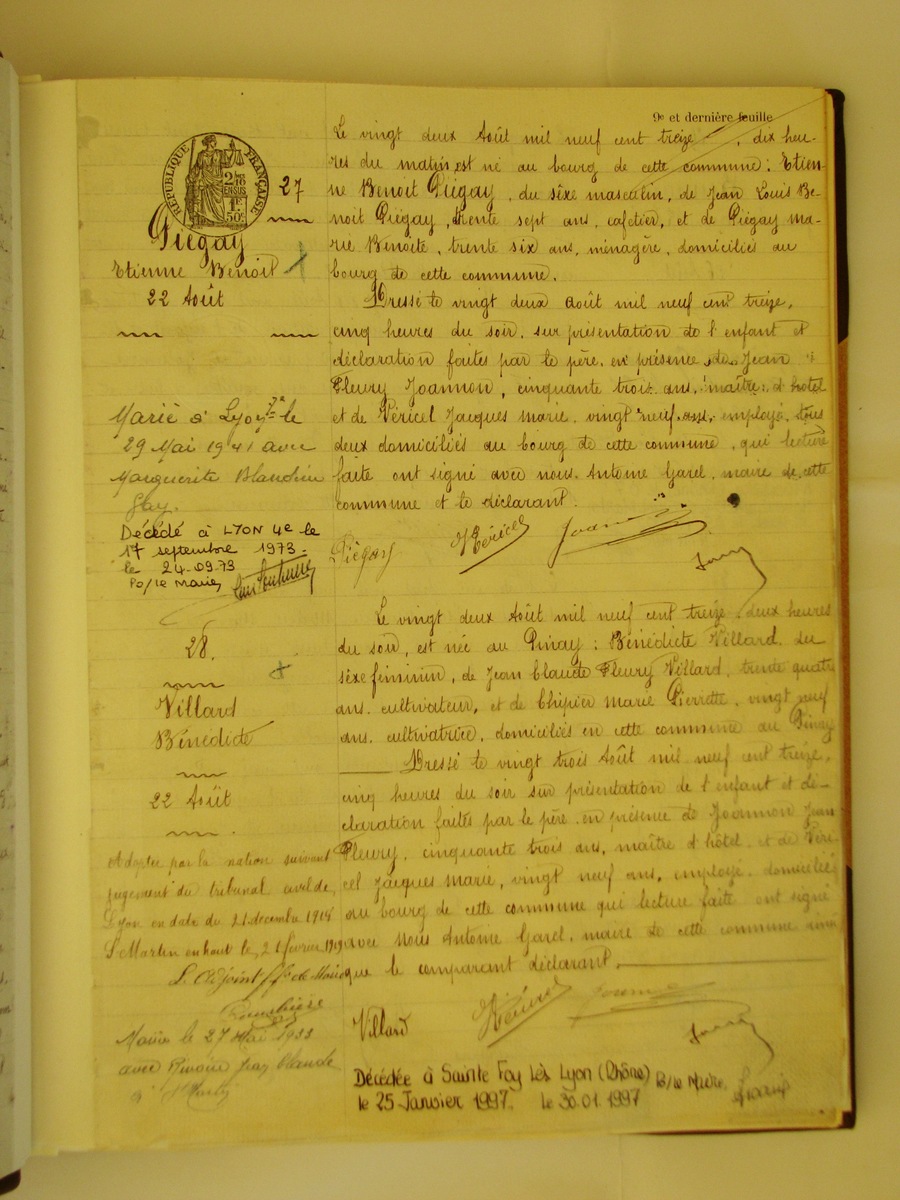 9e et dernière feuille
RÉPUBLIQUE FRANÇAISE
27
Piégay
Etienne Benoit
22 Août
Le vingt deux Août mil neuf cent treize, dix heu-
res du matin est né au bourg de cette commune: Etien-
ne Benoit Piégay, du sèxe masculin, de Jean Louis Be-
noit Piégay, trente sept ans, cafetier, et de Piégay Ma-
rie Bénoite, trente six ans, ménagère, domiciliés au
bourg de cette commune.
Dressé le vingt deux Août mil neuf cent treize,
cinq heures du soir, sur présentation de l'enfant et
déclaration faites par le père, en présence de Jean
Fleury Joannon, cinquante trois ans, maître d'hôtel
et de Véricel Jacques Marie, vingt neuf ans, employé, tous
deux domiciliés au bourg de cette commune, qui lecture
faite ont signé avec nous, Antoine Garel, maire de cette
commune et le déclarant.
Marié à Lyon le
29 Mai 1941 avec
Marguerite Blandine
Décédé à LYON 4e le
17 septembre 1973.
le 24.09.73
Po/le Maire,
Piégay Véricel
28.
Villard
Bénédicte
22 Août
Le vingt deux Août mil neuf cent treize, deux heures
du soir, est née au Pinay: Bénédicte Villard, du
sèxe féminin, de Jean Claude Fleury Villard, trente quatre
ans, cultivateur, et de Chipier Marie Pierrette, vingt neuf
ans, cultivatrice, domiciliés en cette commune au Pinay
Dressé le vingt trois Août mil neuf cent treize,
cinq heures du soir sur présentation de l'enfant et dé-
claration faites par le père, en présence de Joannon Jean
Fleury, cinquante trois ans, maître d'hôtel, et de Véri-
cel Jacques Marie, vingt neuf ans, employé, domiciliés
au bourg de cette commune qui lecture faite ont signé
avec Nous Antoine Garel, maire de cette commune ainsi
que le comparant déclarant.
Adoptée par la nation suivant
jugement du tribunal civil de
Lyon en date du 21 décembre 1918
St Martin en haut le 21 février 1919
L'Adjoint
Mariée le 27 Mai 1933
avec Rivoire Jean Claude
à St
Villard Véricel
Décédée à Sainte Foy Lès Lyon (Rhône) P/le Maire,
le 25 Janvier 1997. le 30.01.1997